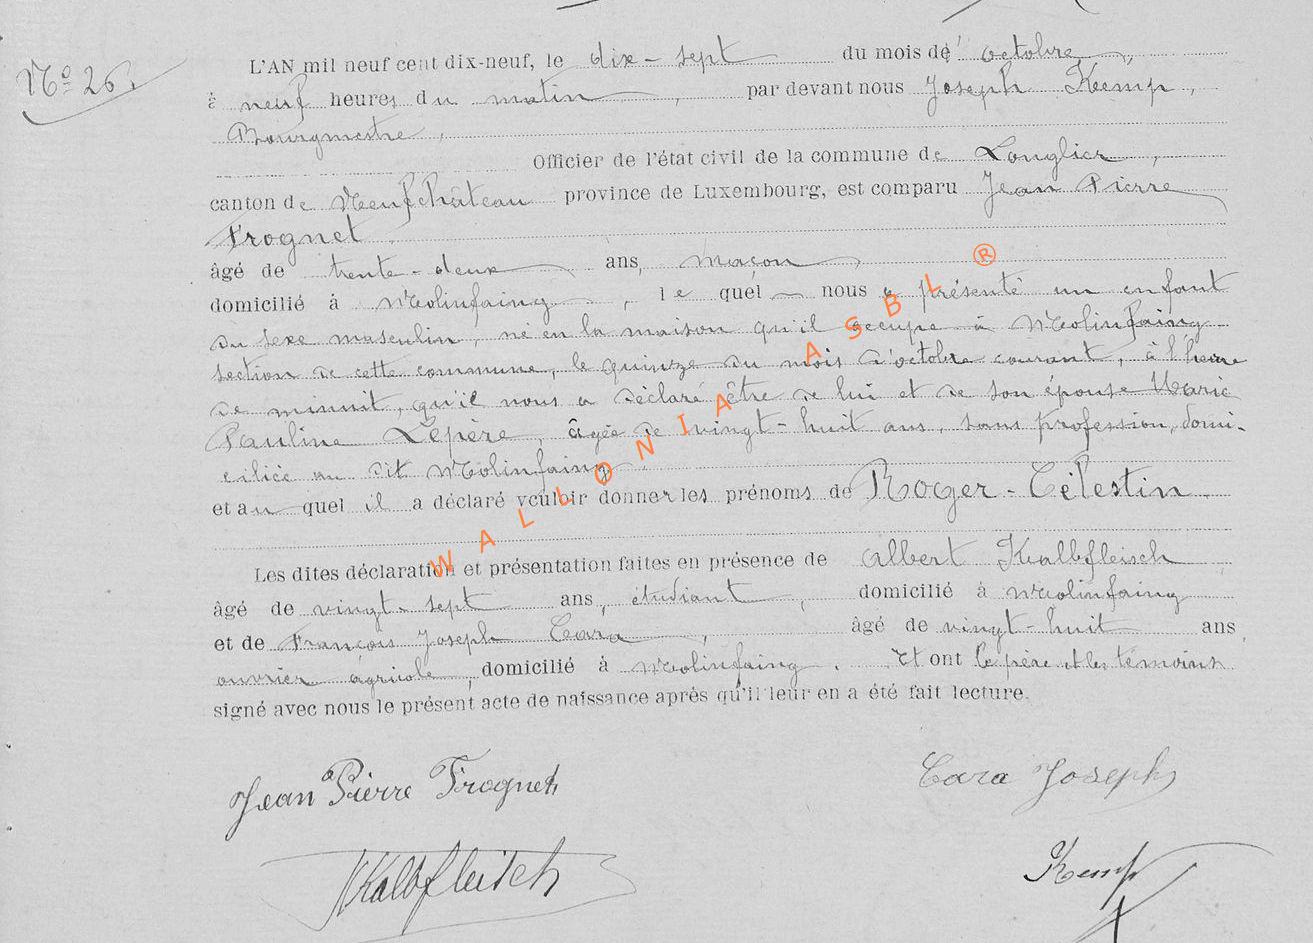 Nº 26.
L'AN mil neuf cent dix-neuf, le dix-sept du mois de octobre,
à neuf heures du matin, par devant nous Joseph Kemp,
Bourgmestre,
Officier de l'état civil de la commune de Longlier,
canton de Neufchâteau province de Luxembourg, est comparu Jean Pierre
Frognet,
âgé de trente-deux ans, maçon,
domicilié à Molinfaing, le quel nous a présenté un enfant
du sexe masculin, né en la maison qu'il occupe à Molinfaing
section de cette commune, le quinze du mois d'octobre courant, à l'heure
de minuit, qu'il nous a déclaré être de lui et de son épouse Marie
Pauline Lepère, âgée de vingt-huit ans, sans profession, domi-
ciliée au dit Molinfaing.
et au quel il a déclaré vouloir donner les prénoms de Roger-Célestin.
Les dites déclaration et présentation faites en présence de Albert Kalbfleisch
âgé de vingt-sept ans, étudiant, domicilié à Molinfaing
et de François Joseph Cara, âgé de vingt-huit ans,
ouvrier agricole, domicilié à Molinfaing. Et ont le père et les témoins
signé avec nous le présent acte de naissance après qu'il leur en a été fait lecture.
Jean Pierre Frognet
Cara Joseph
Kalbfleisch
Kemp
WALLONIA ASBL ®